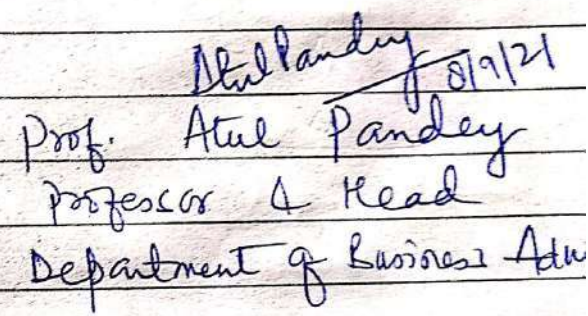 Atul Pandey
8/9/21
Prof. Atul Pandey
Professor & Head
Department of Business Adm